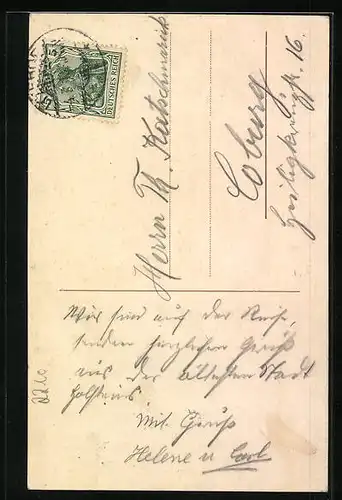 DEUTSCHES REICH
Herrn Th. Katschmarek
Coburg
Heiligkreuzstr. 16.
Wir sind auf der Reise,
senden herzlichen Gruß
aus der ältesten Stadt
Holsteins.
Mit Gruß
Helene u Carl